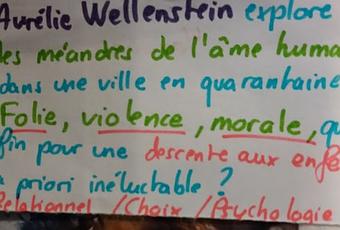 Aurélie Wellenstein explore
les méandres de l'âme huma
dans une ville en quarantaine
Folie, violence, morale, qu
fin pour une descente aux enfe
à priori inéluctable ?
Relationnel /Choix /Psychologie